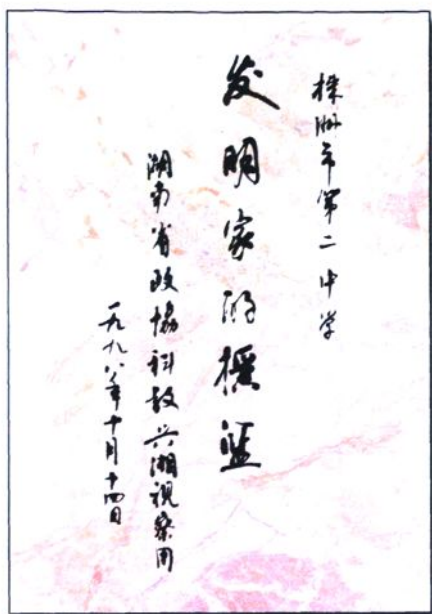 株洲市第二中学
发明家的摇篮
湖南省政协科教兴湘视察团
一九九八年十月十四日